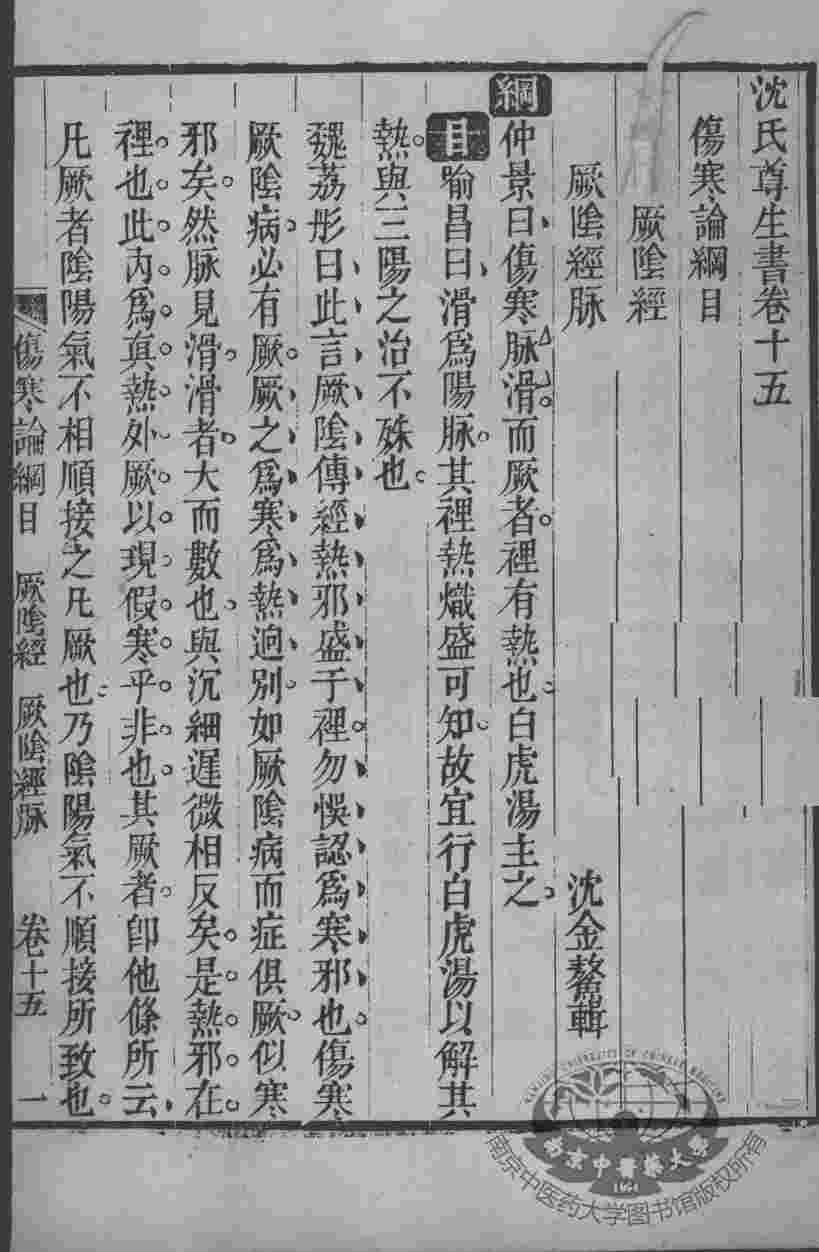 沈氏尊生書卷十五
傷寒論綱目
厥陰經
沈金鰲輯
厥陰經脉
綱仲景曰傷寒脉滑而厥者裡有熱也白虎湯主之
目喻昌曰滑爲陽脉其裡熱熾盛可知故宜行白虎湯以解其
熱與三陽之治不殊也
魏荔彤曰此言厥陰傳經熱邪盛于裡勿悞認爲寒邪也傷寒
厥陰病必有厥厥之爲寒爲熱逈別如厥陰病而症俱厥似寒
邪矣然脉見滑滑者大而數也與沉細遲微相反矣是熱邪在
裡也此內爲眞熱外厥以現假寒乎非也其厥者卽他條所云
凡厥者陰陽氣不相順接之凡厥也乃陰陽氣不順接所致也
傷寒論綱目 厥陰經 厥陰經脉 卷十五 一
南京中醫藥大學
1954
南京中医药大学图书馆版权所有